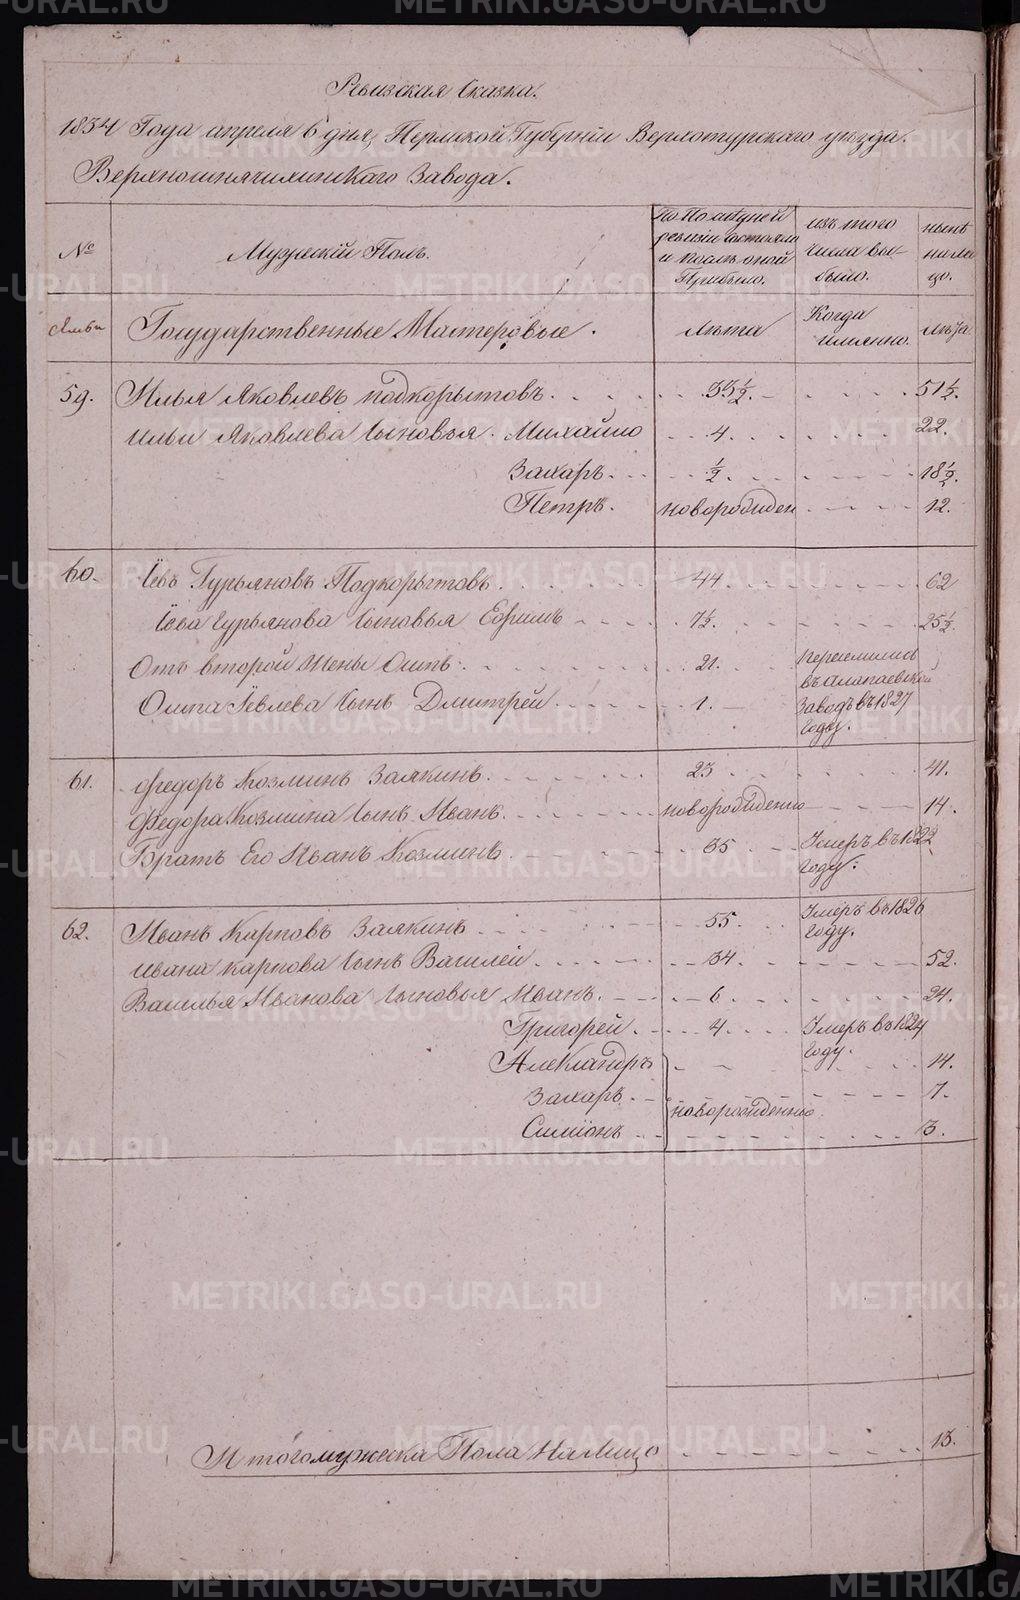 Ревизская Сказка.
1834 Года апреля 6 дня, Пермской Губернiи Верхотурскаго уезда.
Верхнеи Завода.
№
Мужескiй Полъ.
По Последней
ревизiи состояло
и после оной
Прибыло.
изъ того
числа вы-
было.
ныне
на ли-
цо.
семьи
Государственные Мастеровые.
лъта
Когда
имянно.
лъта
59. Илья Яковлевъ подкорытовъ 33½ 51½.
Ильи Яковлева Сыновья. Михайло 4. 22.
Захаръ ½. 18½.
Петръ. новорожден 12.
60. Iевъ Гурьяновъ Подкорытовъ. 44 62
Iева Гурьянова Сыновья Ефимъ 7½. 25½.
Отъ второй Жены Осипъ. 21. переселились
въ алапаевской
Осипа Iевлева Сынъ Дмитрей 1. Заводъ въ 1827
году.
61. Федоръ Козминъ Заякинъ. 23 41.
Федора Козмина Сынъ Иванъ. новорожденно 14.
Братъ Его Иванъ Козминъ. 35 Умеръ въ 1822
году.
62. Иванъ Карповъ Заякинъ 55. Умеръ въ 1826
году.
Ивана Карпова Сынъ Василей 34. 52.
Василья Иванова Сыновья Иванъ. 6 24.
Григорей. 4. Умеръ въ 1824
году.
Александръ 14.
Захаръ. новорожденно. 7.
Симiонъ 3.
И того мужеска Пола На Лицо 13.
METRIKI.GASO-URAL.RU